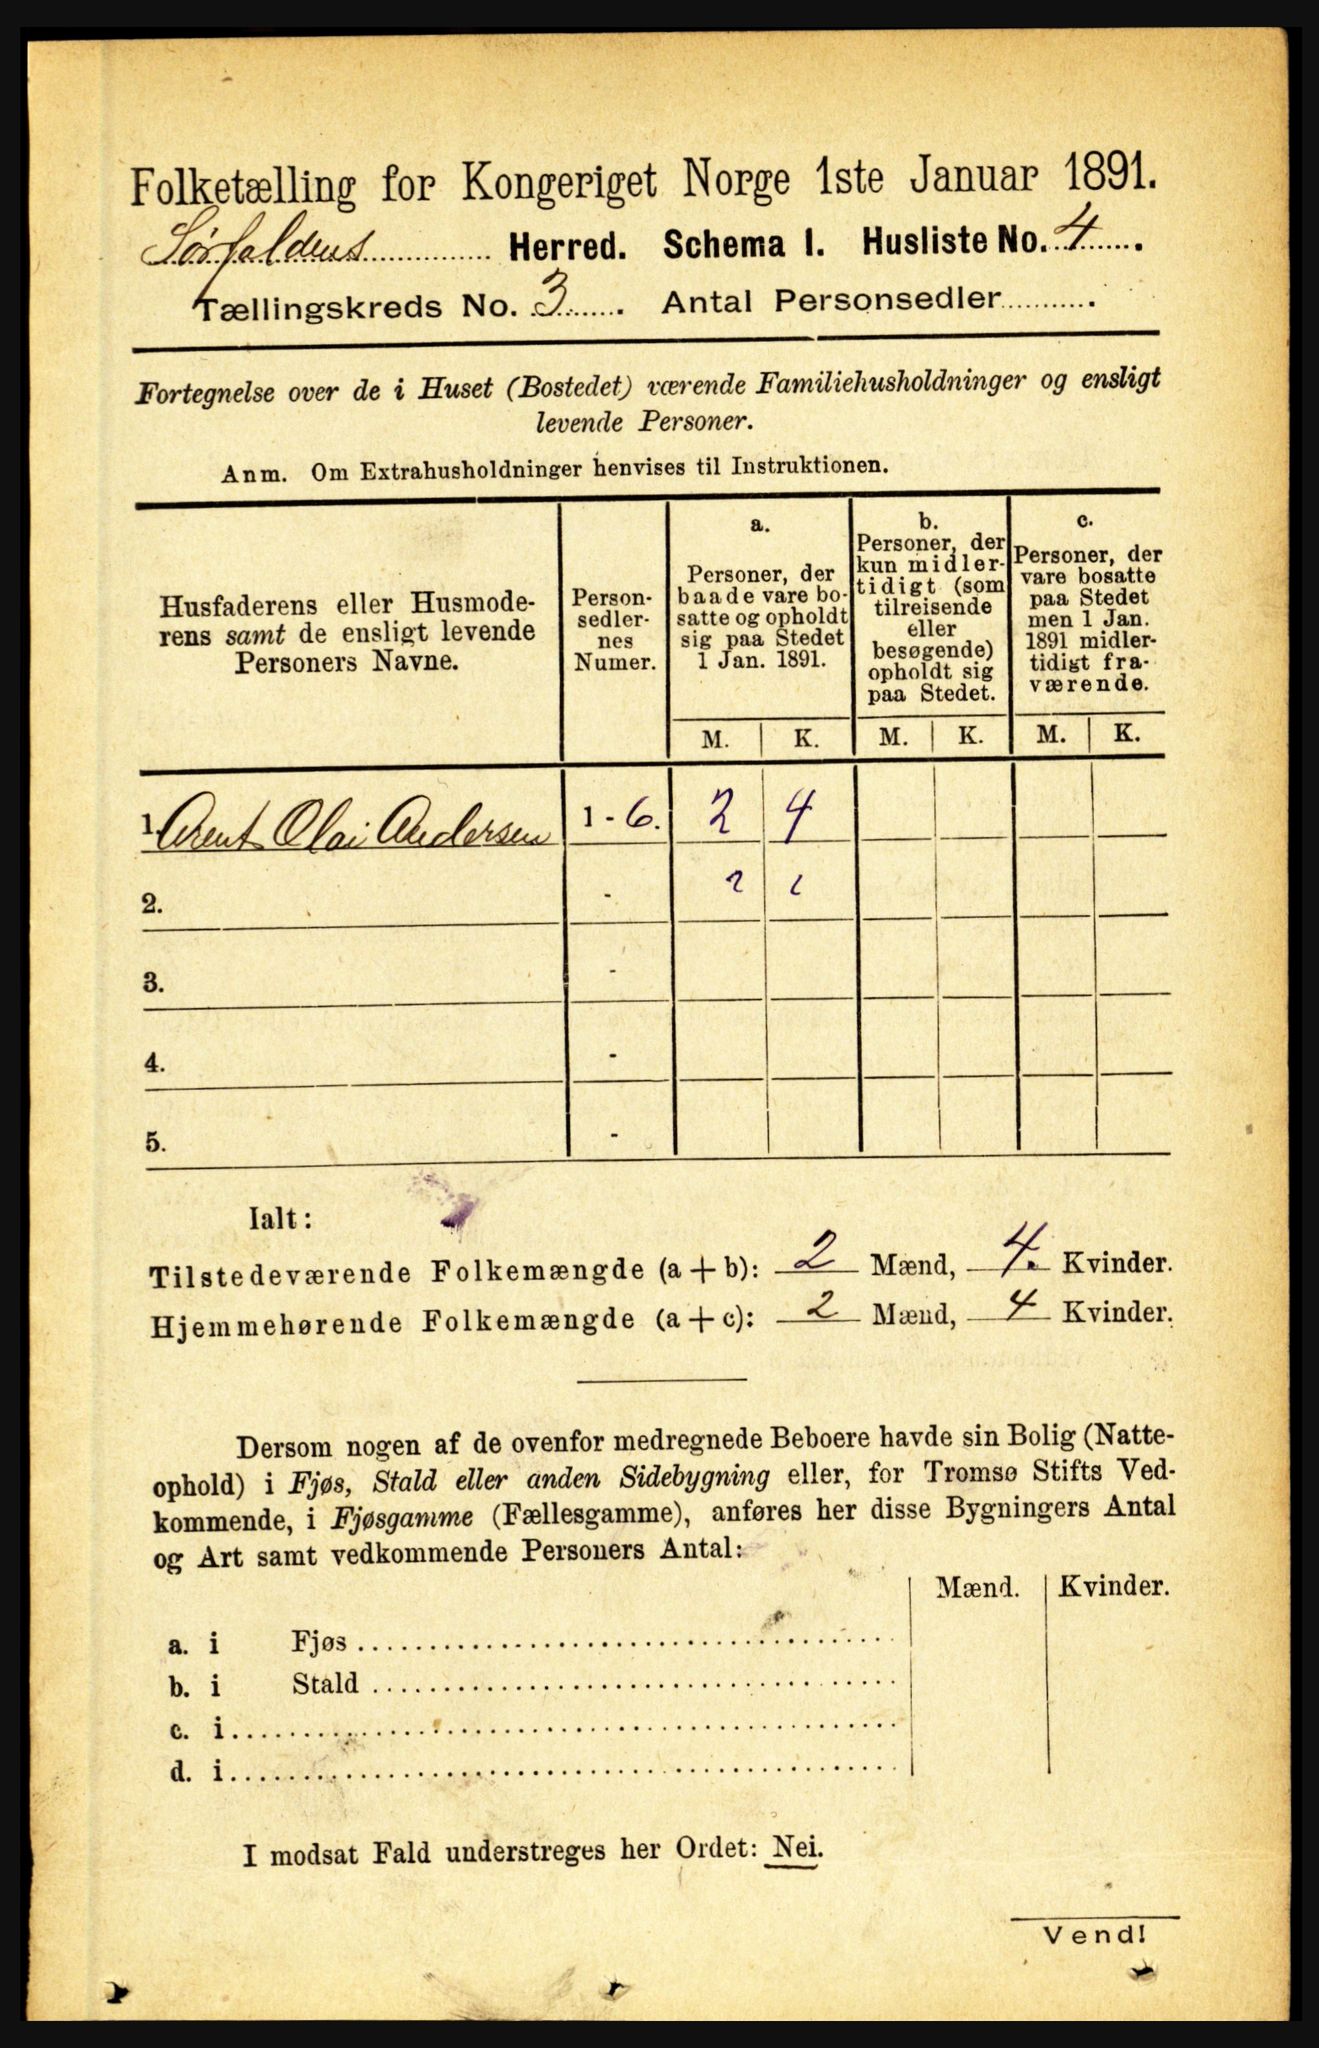 Folketælling for Kongeriget Norge 1ste Januar 1891.
Sørfoldens Herred. Schema 1. Husliste No. 4
Tællingskreds No. 3. Antal Personsedler
Fortegnelse over de i Huset (Bostedet) værende Familiehusholdninger og ensligt
levende Personer.
Anm. Om Extrahusholdninger henvises til Instruktionen.
Husfaderens eller Husmode-
rens samt de ensligt levende
Personers Navne.
Person-
sedler-
nes
Numer.
a.
Personer, der
baade vare bo-
satte og opholdt
sig paa Stedet
1 Jan. 1891.
b.
Personer, der
kun midler-
tidigt (som
tilreisende
eller
besøgende)
opholdt sig
paa Stedet.
c.
Personer, der
vare bosatte
paa Stedet
men 1 Jan.
1891 midler-
tidigt fra-
værende.
M. K. M. K. M. K.
1. Arent Olai Andersen 1 - 6. 2 4
2. -
3. -
4. -
5. -
Ialt:
Tilstedeværende Folkemængde (a + b): 2 Mænd, 4. Kvinder.
Hjemmehørende Folkemængde (a + c): 2 Mænd, 4 Kvinder.
Dersom nogen af de ovenfor medregnede Beboere havde sin Bolig (Natte-
ophold) i Fjøs, Stald eller anden Sidebygning eller, for Tromsø Stifts Ved-
kommende, i Fjøsgamme (Fællesgamme), anføres her disse Bygningers Antal
og Art samt vedkommende Personers Antal:
Mænd. Kvinder.
a. i Fjøs
b. i Stald
c. i
d. i
I modsat Fald understreges her Ordet: Nei.
Vend!